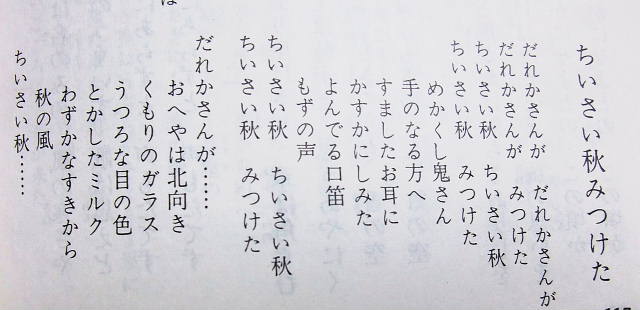 ちいさい秋みつけた
だれかさんが　だれかさんが
だれかさんが　みつけた
ちいさい秋　ちいさい秋
ちいさい秋　みつけた
めかくし鬼さん
手のなる方へ
すましたお耳に
かすかにしみた
よんでる口笛
もずの声
ちいさい秋　ちいさい秋
ちいさい秋　みつけた
だれかさんが……
おへやは北向き
くもりのガラス
うつろな目の色
とかしたミルク
わずかなすきから
秋の風
ちいさい秋……